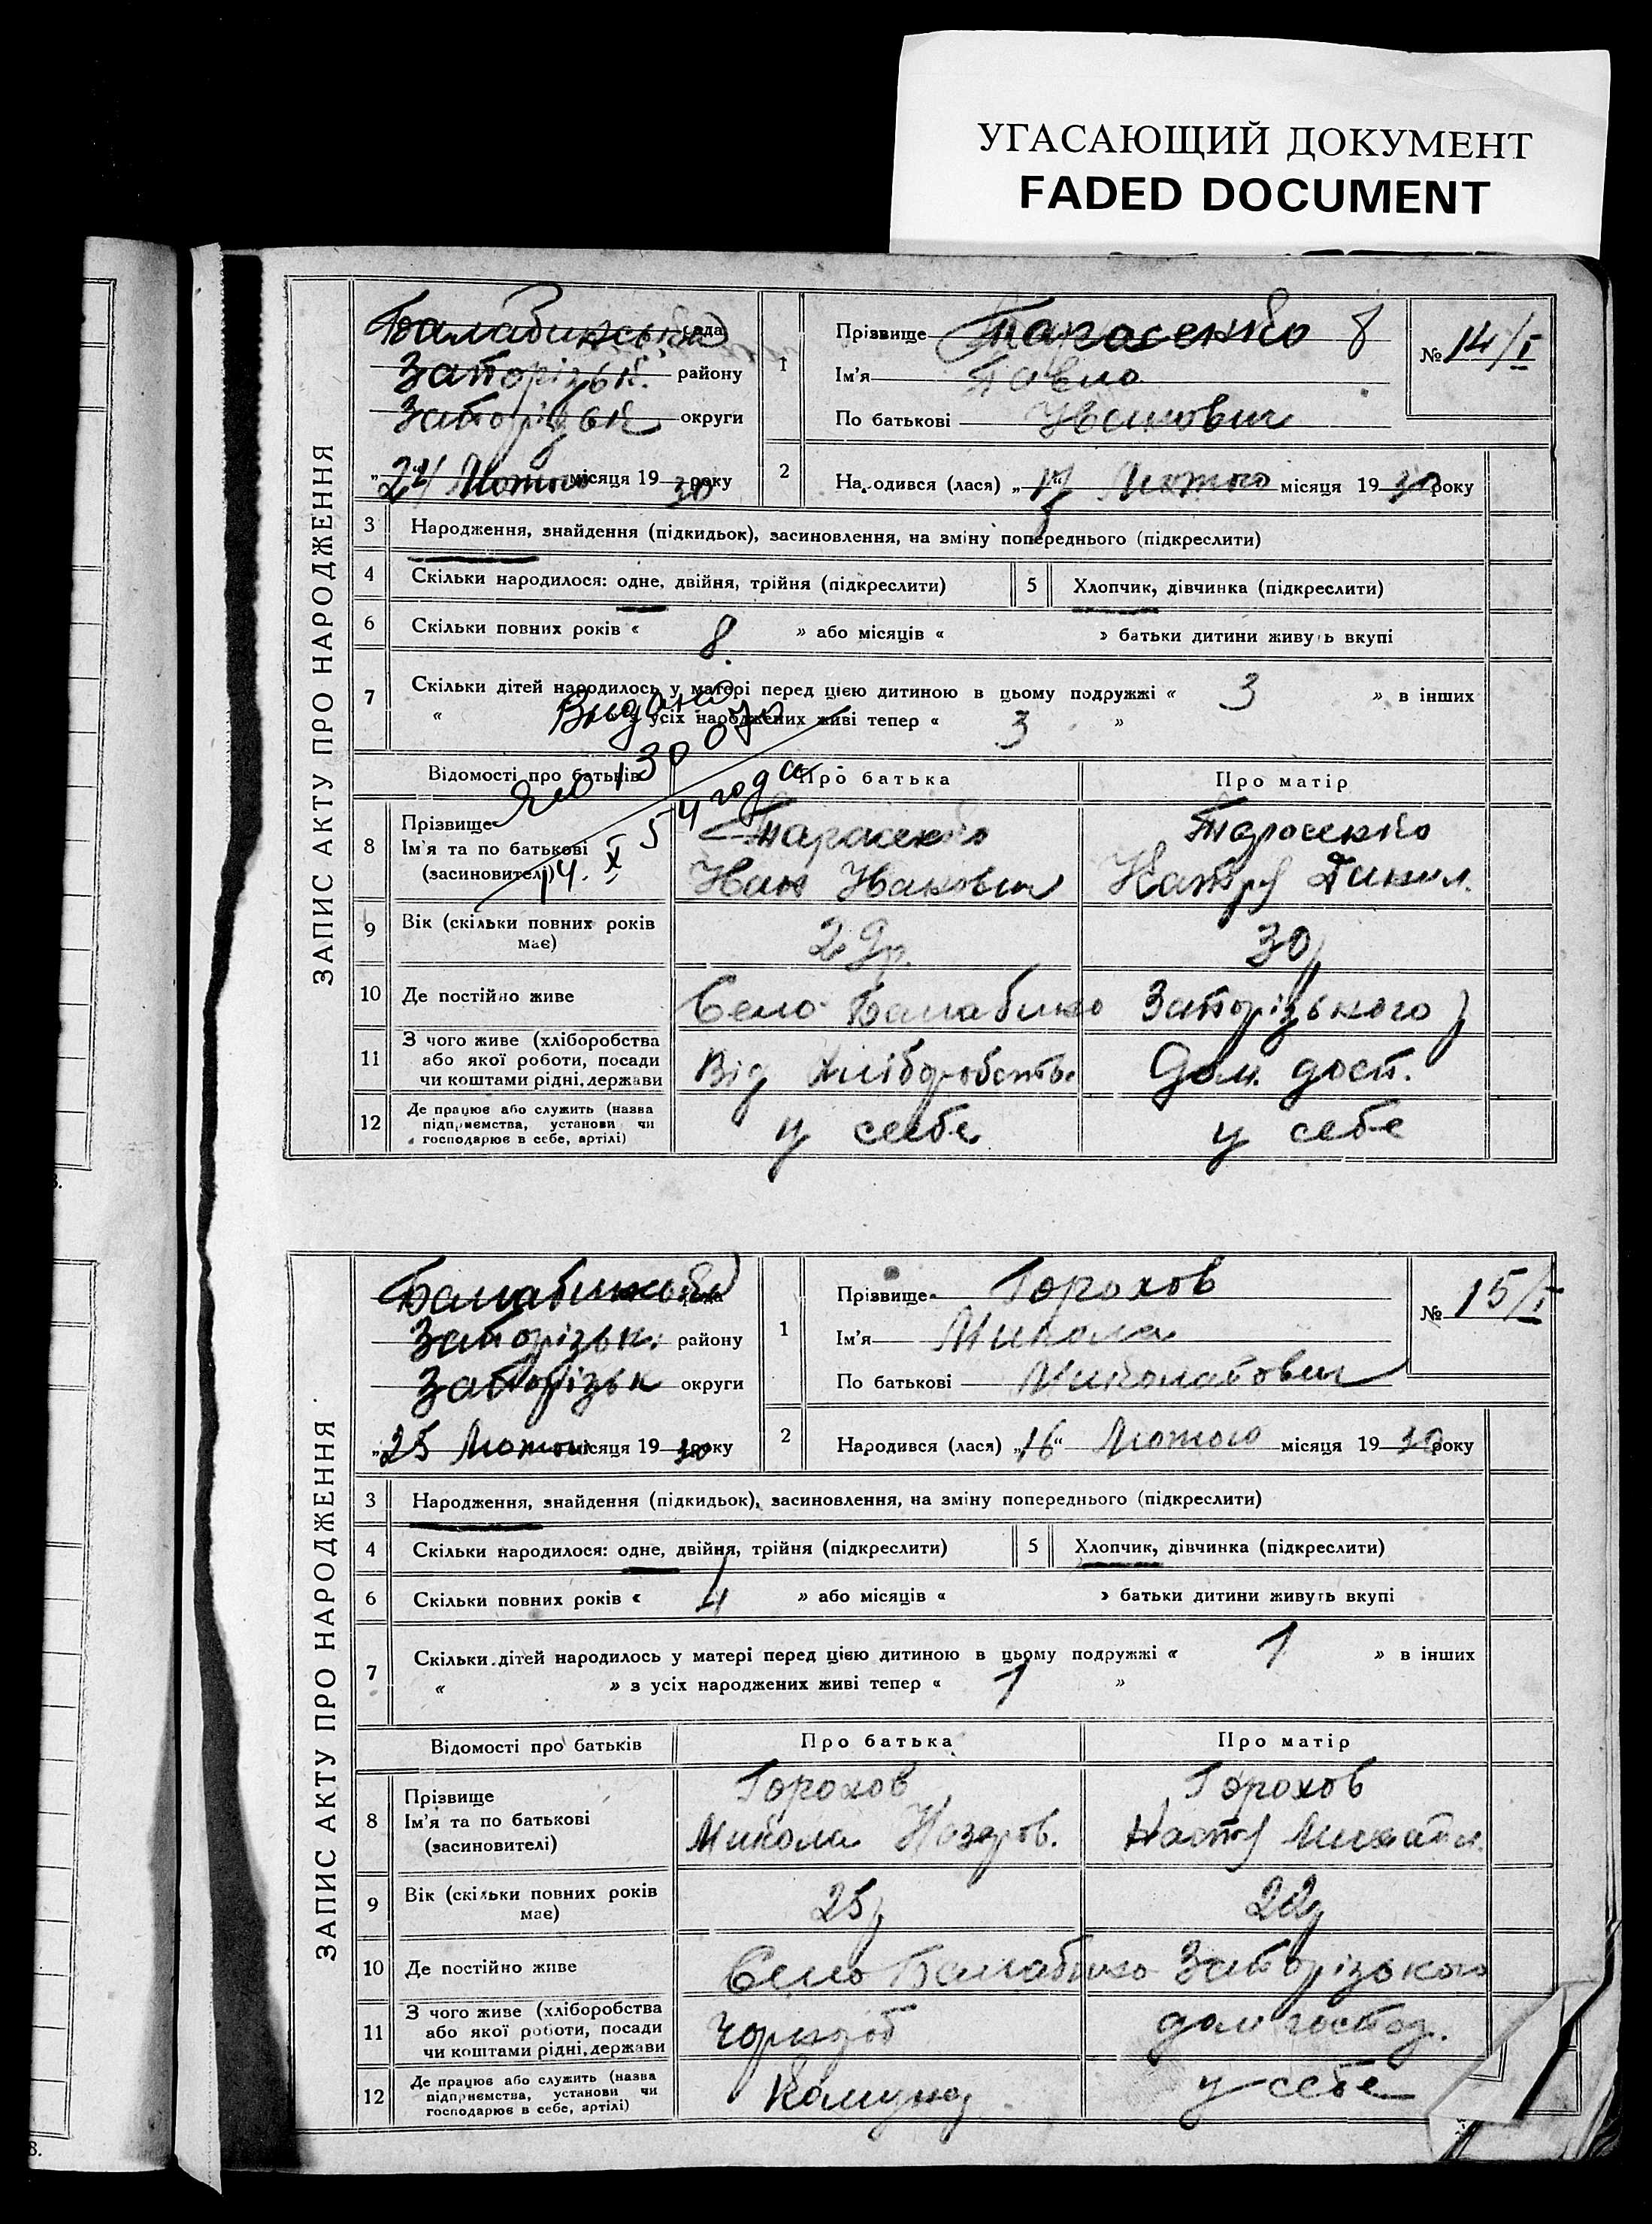 УГАСАЮЩИЙ ДОКУМЕНТ
FADED DOCUMENT
ЗАПИС АКТУ ПРО НАРОДЖЕННЯ
Балабинська рада
Запорізьк. району
Запорізьк округи
„24 Лютого місяця 19 30 року
1
Прізвище Тарасенко 8
Ім'я Павло
По батькові Иванович
№ 14/I
2
Народився (лася) „17 Лютого місяця 19 30 року
3 Народження, знайдення (підкидьок), засиновлення, на зміну попереднього (підкреслити)
4 Скільки народилося: одне, двійня, трійня (підкреслити)
5 Хлопчик, дівчинка (підкреслити)
6 Скільки повних років « 8 » або місяців « » батьки дитини живуть вкупі
7 Скільки дітей народилось у матері перед цією дитиною в цьому подружжі « 3 » в інших
« » з усіх народжених живі тепер « 3 »
14. X 54 года
Відомості про батьків Про батька Про матір
8 Прізвище
Ім'я та по батькові
(засновителі)
Тарасенко
Иван Иванович
Тарасенко
9 Вік (скільки повних років має) 29р. 30р
10 Де постійно живе Село Балабино Запорізького р
11 З чого живе (хліборобства або якої роботи, посади чи коштами рідні, держави Від хліборобств. Дом. госп.
12 Де працює або служить (назва підприємства, установи чи господарює в себе, артілі) у себе у себе
ЗАПИС АКТУ ПРО НАРОДЖЕННЯ
Балабинська рада
Запорізьк. району
Запорізьк округи
„25 Лютого місяця 19 30 року
1
Прізвище Горохов
Ім'я Микола
По батькові Миколайович
№ 15/I
2
Народився (лася) „16“ Лютого місяця 19 30 року
3 Народження, знайдення (підкидьок), засиновлення, на зміну попереднього (підкреслити)
4 Скільки народилося: одне, двійня, трійня (підкреслити)
5 Хлопчик, дівчинка (підкреслити)
6 Скільки повних років « 4 » або місяців « » батьки дитини живуть вкупі
7 Скільки дітей народилось у матері перед цією дитиною в цьому подружжі « 1 » в інших
« » з усіх народжених живі тепер « 1 »
Відомості про батьків Про батька Про матір
8 Прізвище
Ім'я та по батькові
(засиновителі)
Горохов
Микола Назаров.
Горохов
Наст. Михайл.
9 Вік (скільки повних років має) 25р 22р
10 Де постійно живе Село Балабино Запорізького
11 З чого живе (хліборобства або якої роботи, посади чи коштами рідні, держави Чорнороб дом господ.
12 Де працює або служить (назва підприємства, установи чи господарює в себе, артілі) Комуна у себе